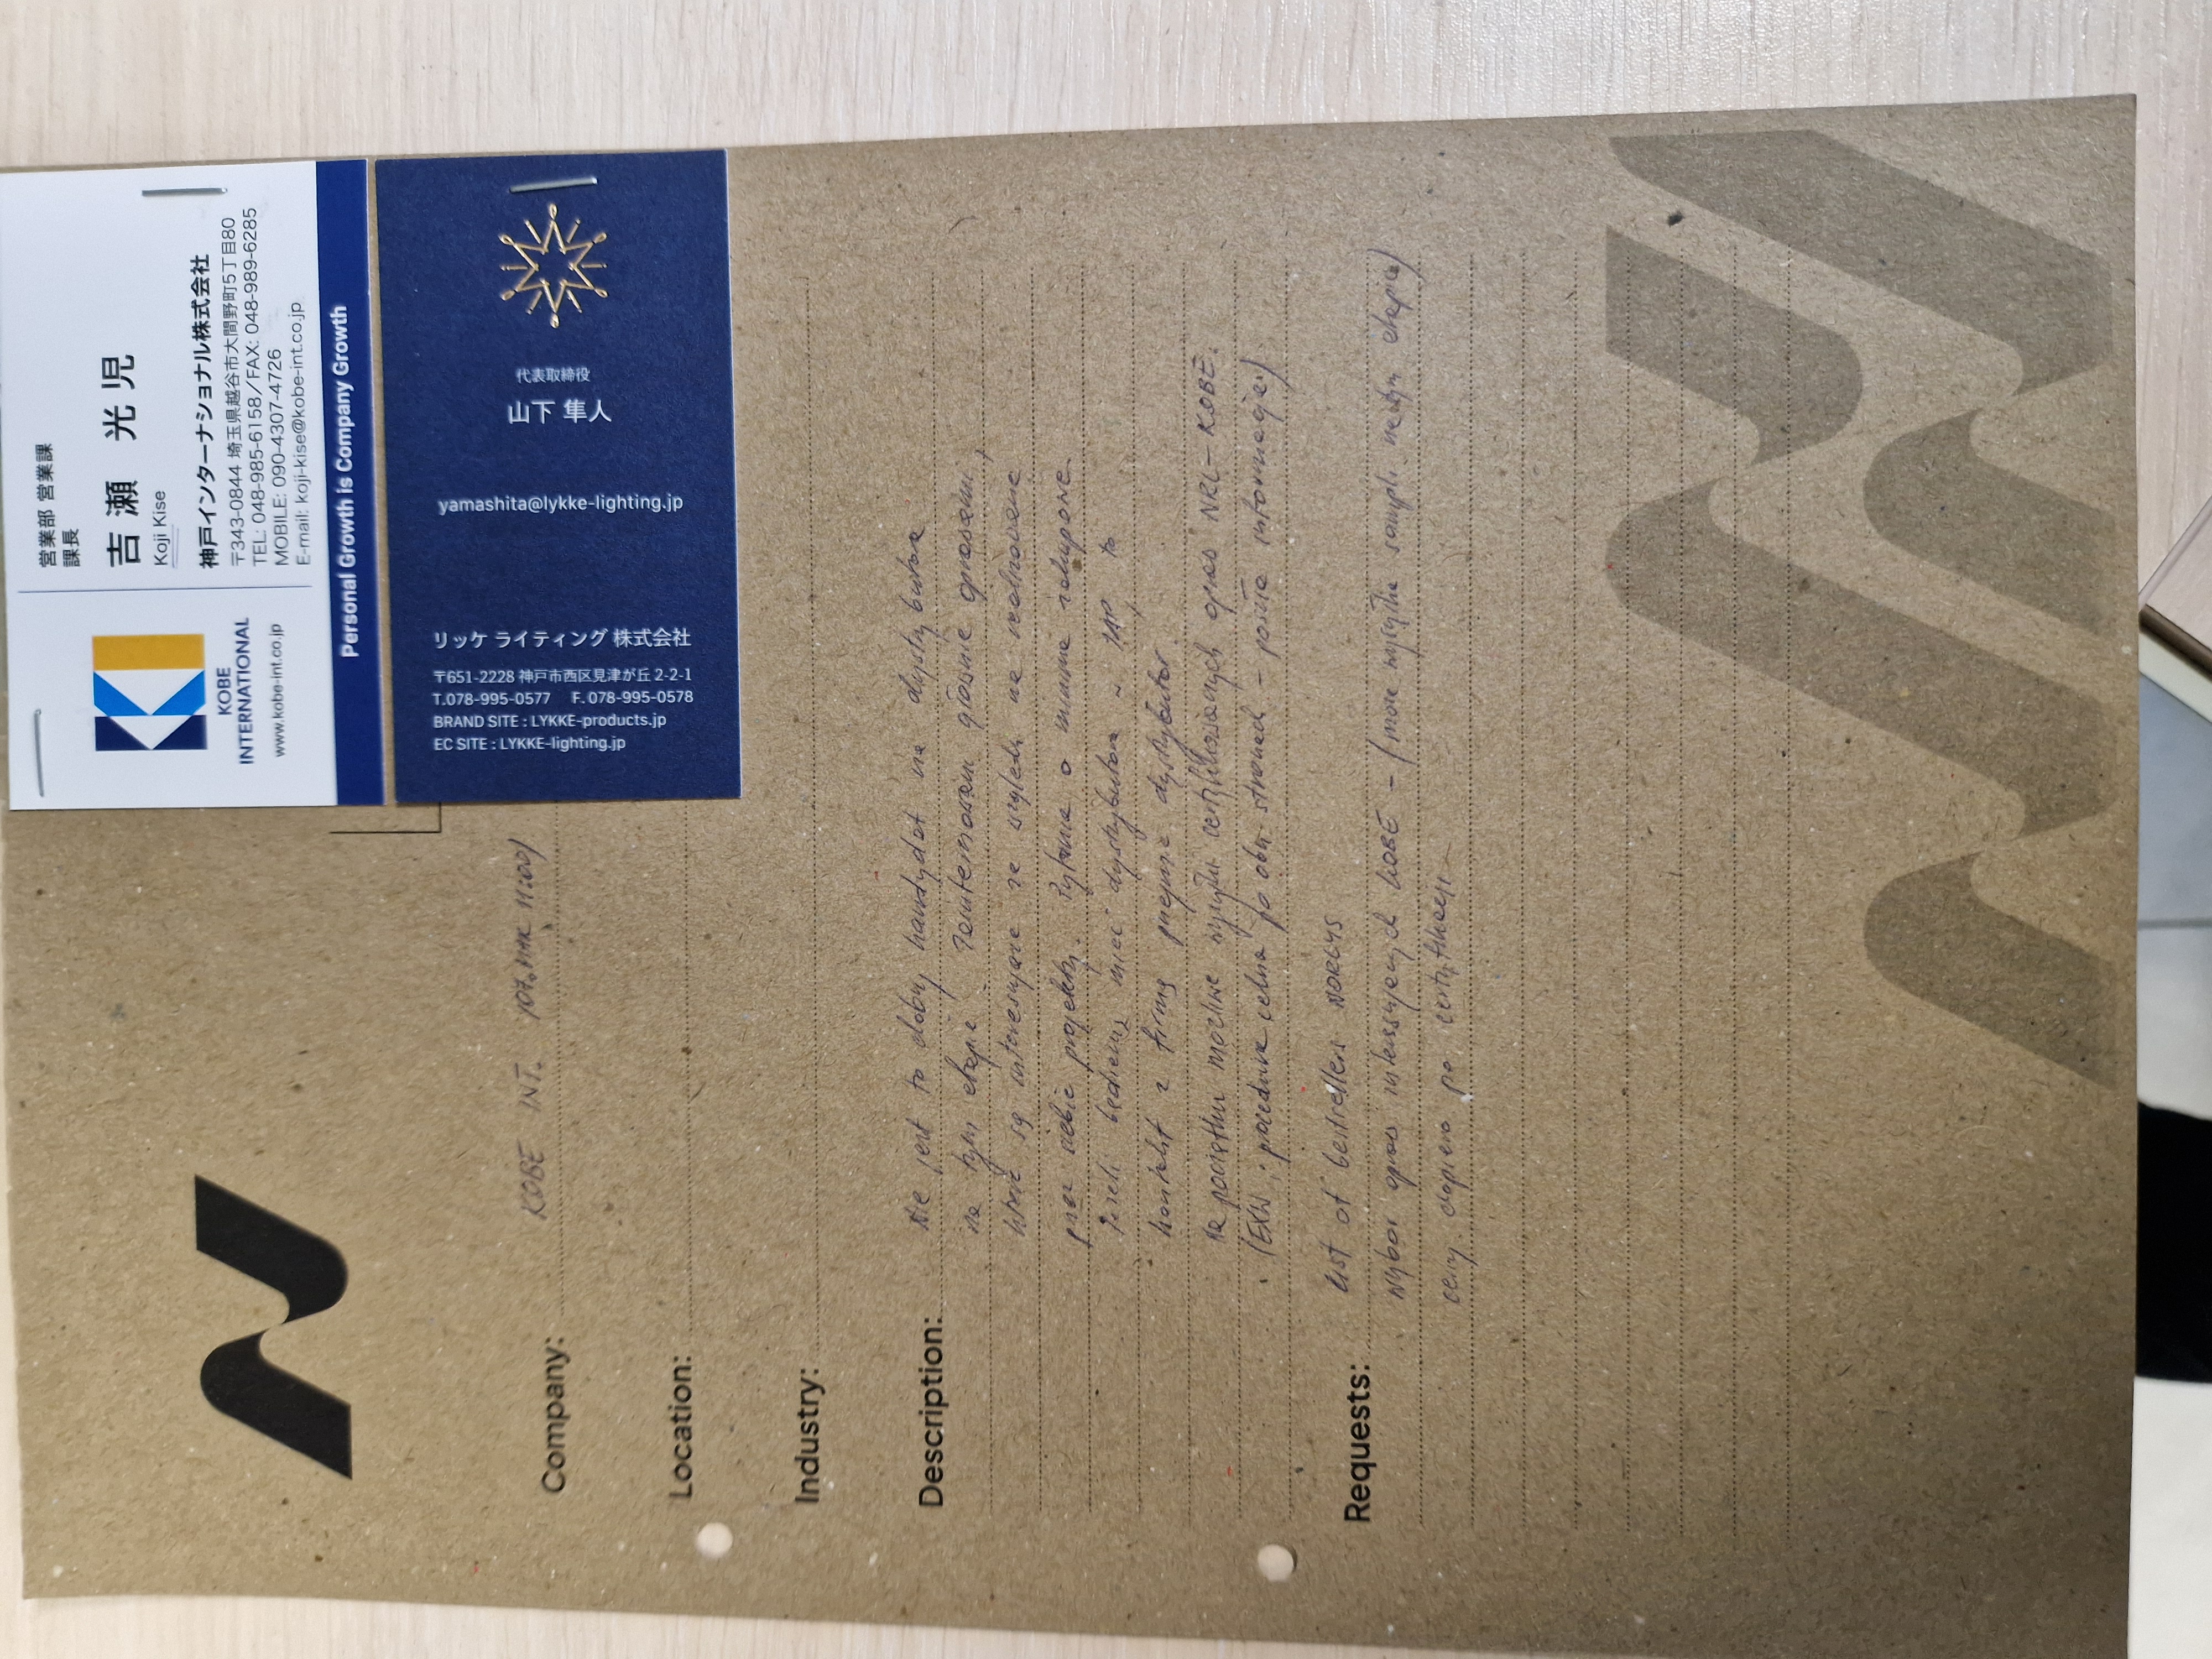 営業部 営業課
課長
吉瀬 光児
Koji Kise
神戸インターナショナル株式会社
〒343-0844 埼玉県越谷市大間野町5丁目80
TEL: 048-985-6158／FAX: 048-989-6285
MOBILE: 090-4307-4726
E-mail: koji-kise@kobe-int.co.jp
KOBE
INTERNATIONAL
www.kobe-int.co.jp
Personal Growth is Company Growth
代表取締役
山下 隼人
yamashita@lykke-lighting.jp
リッケ ライティング 株式会社
〒651-2228 神戸市西区見津が丘 2-2-1
T.078-995-0577 F.078-995-0578
BRAND SITE : LYKKE-products.jp
EC SITE : LYKKE-lighting.jp
Company: KOBE INT. 11:00
Location:
Industry:
Description: Nie jest to dobry kandydat na dystrybutora
na tym etapie. Zainteresowani głównie oprawami,
które są interesujące ze względu na realizowane
przez siebie projekty. Pytania o minima zakupowe.
Jeżeli będziemy mieć dystrybutora to
kontakt z firmą przejmie dystrybutor.
Na początku możliwe wysyłki certyfikowanych opraw NRL - KOBE.
(EXW; procedura celna po obu stronach -
Requests: List of bestsellers NORLYS
Wybór opraw interesujących KOBE - sampli
ceny dopiero po certyfikacji